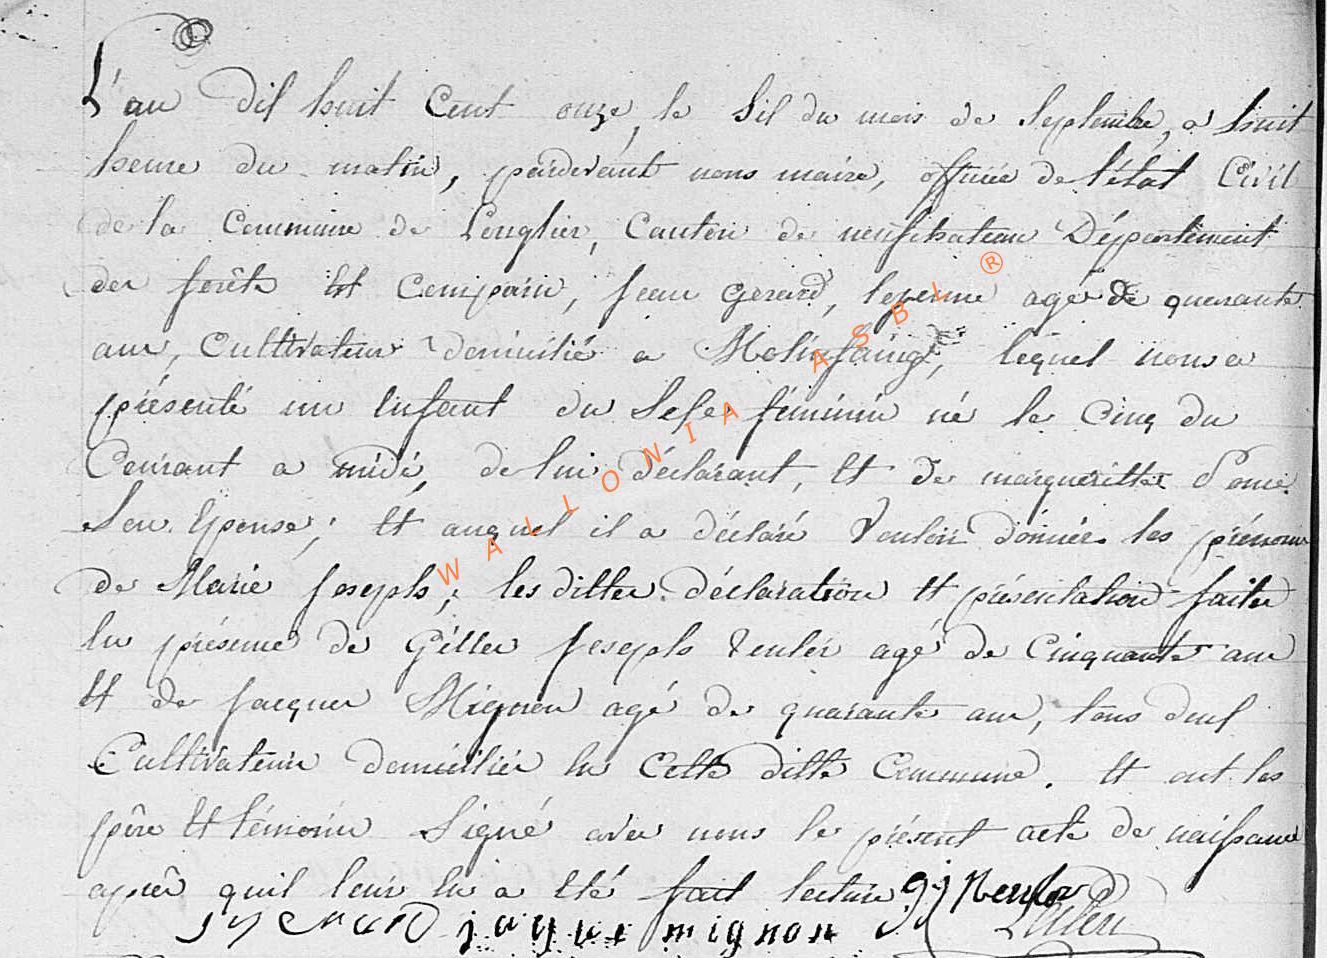 L'an dil huit Cent onze, le Sil du mois de Septembre, a huit
heure du matin, pardevant nous maire, officié de l'état Civil
de la Commune de Longlier, Canton de neufchateau Département
des forêts Est Comparu, Jean Gerard, age de quarante
ans, Cultivateur domicilié a Molinfaing, lequel nous a
présenté un Enfant du Sexe féminin né le Cinq du
Courant a midi, de lui déclarant, Et de margueritte
Son Epouse; Et auquel il a déclaré Vouloir donner les prénoms
de Marie Joseph; les dittes déclaration Et présentation faites
En présence de Gilles Joseph agé de Cinquante ans
Et de Jacques Mignon agé de quarante ans, tous deul
Cultivateurs domiciliés En Cette ditte Commune. Et ont les
père Et témoins Signé avec nous le présent acte de naissance
après quil leur En a Eté fait lecture
jaques mignon
WALLONIA ASBL ®